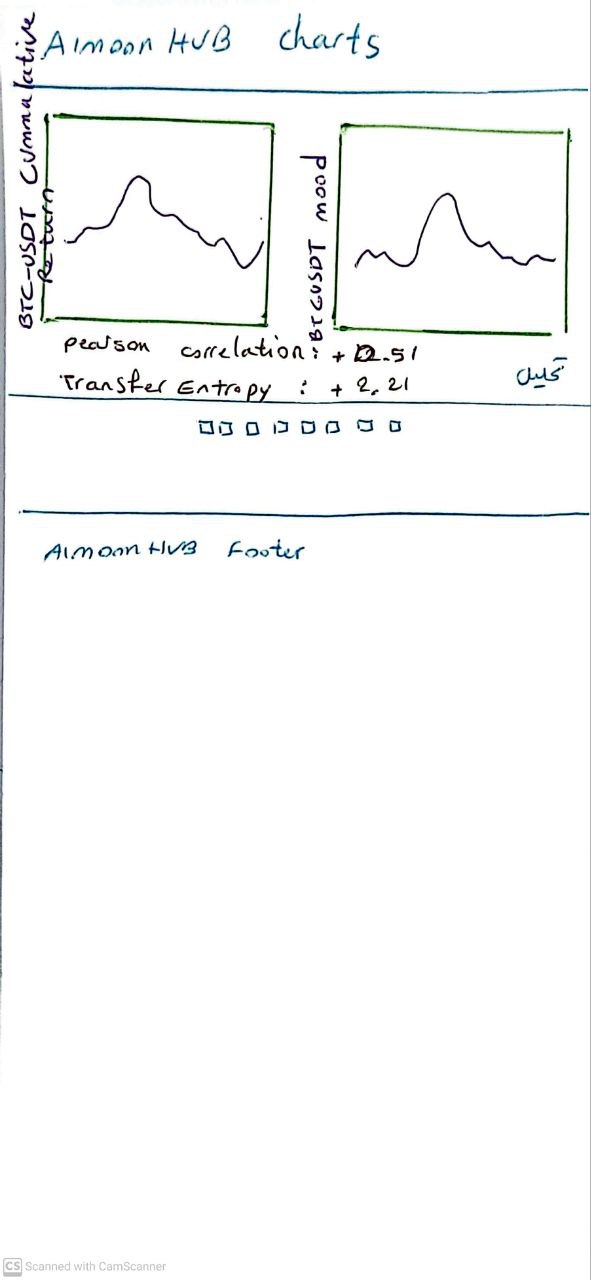 Aimoon HUB charts
BTC-USDT Cummalative
Return
BTCUSDT mood
pearson correlation: + 0.51
Transfer Entropy : + 2.21
Aimoon HUB Footer
CS Scanned with CamScanner